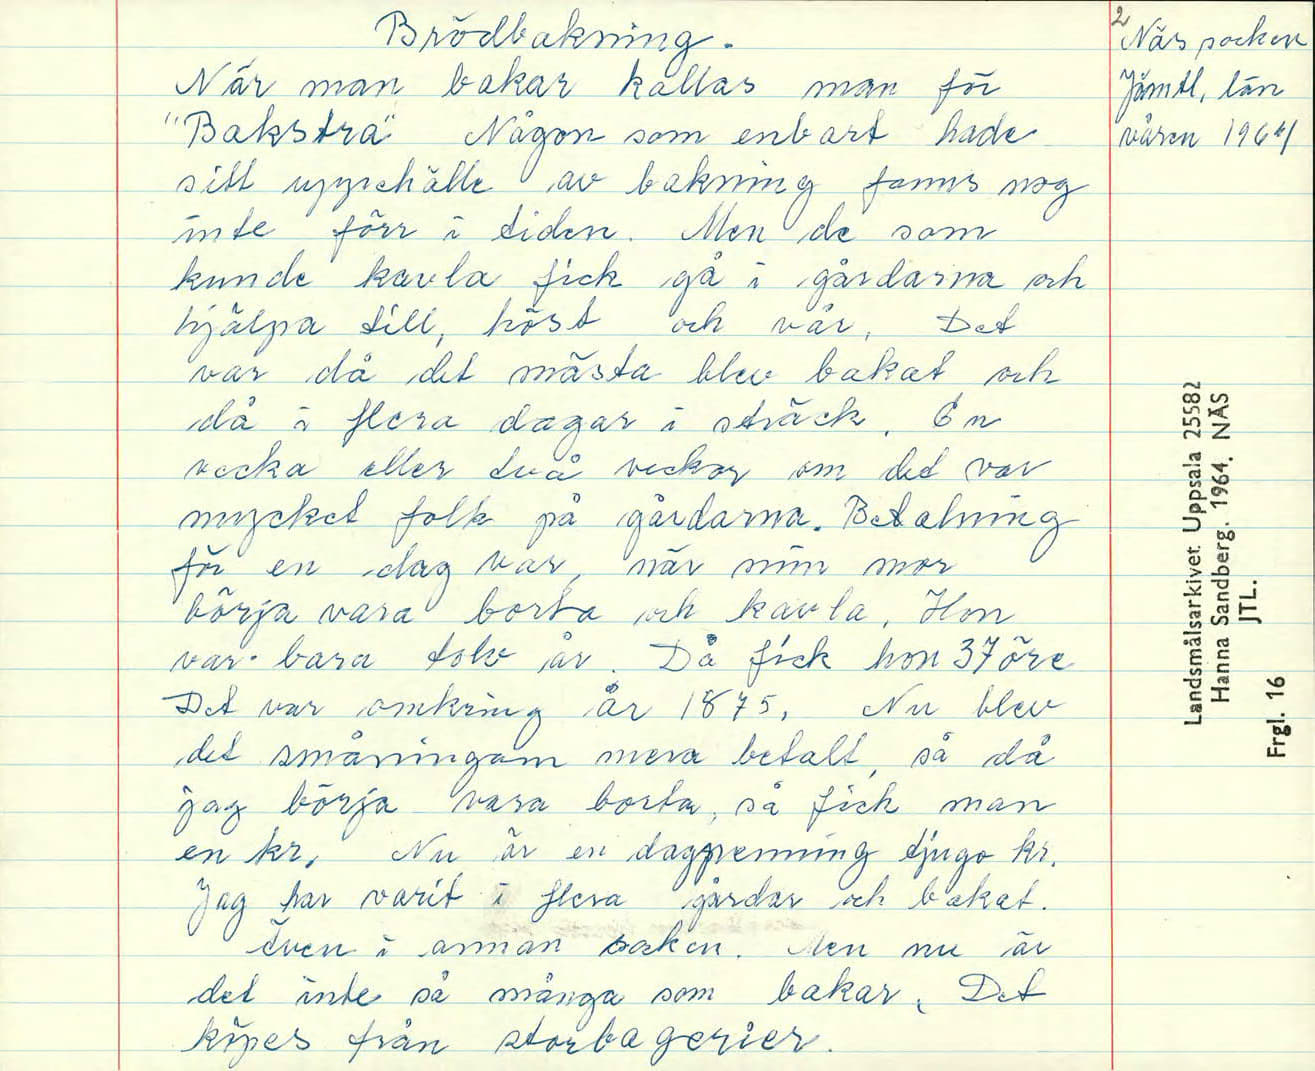 Brödbakning.
När man bakar kallas man för
"Bakstra" Någon som enbart hade
sitt uppehälle av bakning fanns nog
inte förr i tiden. Men de som
kunde kavla fick gå i gårdarna och
hjälpa till, höst och vår. Det
var då det mästa blev bakat och
då i flera dagar i sträck. En
vecka eller två veckor om det var
mycket folk på gårdarna. Betalning
för en dag var, när min mor
börja vara borta och kavla. Hon
var bara tolv år. Då fick hon 37 öre
Det var omkring år 1875. Nu blev
det småningom mera betalt, så då
jag börja vara borta, så fick man
en kr. Nu är en dagpenning tjugo kr.
Jag har varit i flera gårdar och bakat.
Även i annan socken. Men nu är
det inte så många som bakar. Det
köpes från storbagerier.
2
Näs socken
Jämtl. län
våren 1964
Landsmålsarkivet Uppsala 25582
Hanna Sandberg. 1964. NÄS
JTL.
Frgl. 16